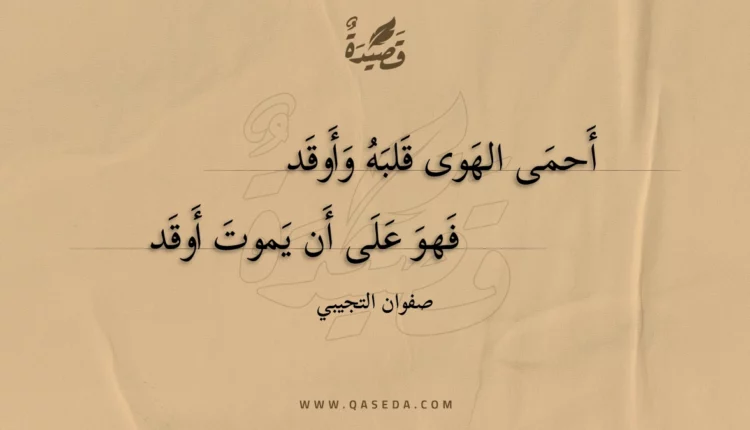 قَصِيْدَةٌ
أَحمَى الهَوى قَلبَهُ وَأَوقَد
فَهوَ عَلَى أَن يَموتَ أَوقَد
صفوان التجيبي
WWW.QASEDA.COM